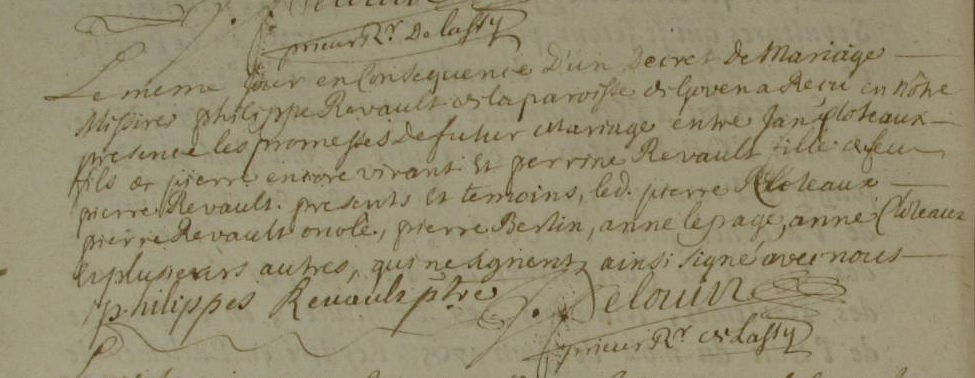 prieur Rr. De Lassy
Le meme Jour en Consequence D'un Decret de Mariage
Missire philippe Revault de la paroisse de Goven a Recu en nôtre
presence les promesses de futur Mariage entre Jan Cloteaux
fils de pierre encore vivant Et perrine Revault fille de feu
pierre Revault. presents Et temoins, led. pierre Cloteaux
pierre Revault oncle, pierre Bertin, anne lepage, anne Cloteaux
Et plusieurs autres, qui ne signent, ainsi signé avec nous
philippes Revault ptre J. Delouin
prieur Rr. de Lassy